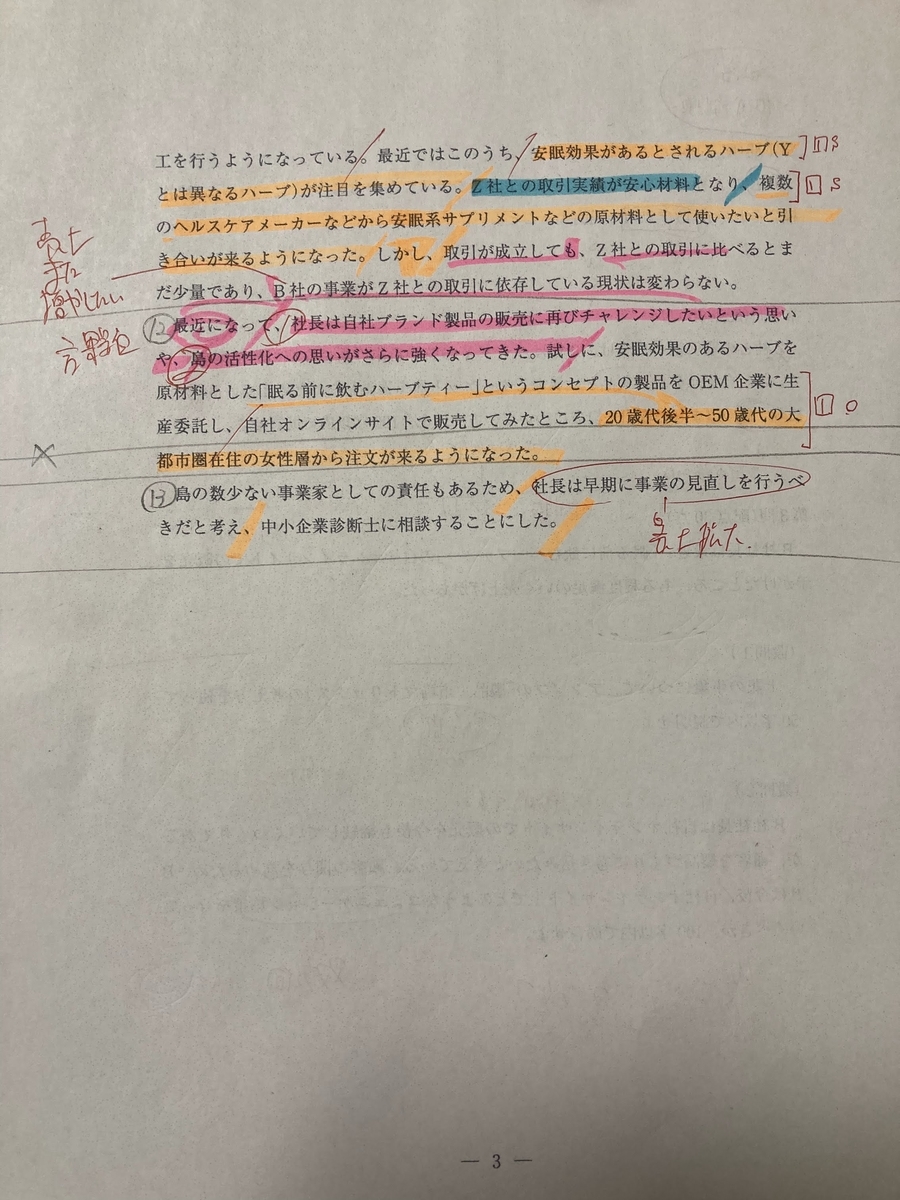 工を行うようになっている。最近ではこのうち、安眠効果があるとされるハーブ(Y
とは異なるハーブ)が注目を集めている。Z社との取引実績が安心材料となり、複数
のヘルスケアメーカーなどから安眠系サプリメントなどの原材料として使いたいと引
き合いが来るようになった。しかし、取引が成立しても、Z社との取引に比べるとま
だ少量であり、B社の事業がZ社との取引に依存している現状は変わらない。
⑫ 最近になって、社長は自社ブランド製品の販売に再びチャレンジしたいという思い
や、島の活性化への思いがさらに強くなってきた。試しに、安眠効果のあるハーブを
原材料とした「眠る前に飲むハーブティー」というコンセプトの製品をOEM企業に生
産委託し、自社オンラインサイトで販売してみたところ、20歳代後半～50歳代の大
都市圏在住の女性層から注文が来るようになった。
⑬ 島の数少ない事業家としての責任もあるため、社長は早期に事業の見直しを行うべ
きだと考え、中小企業診断士に相談することにした。
S
S
O
① 
②
— 3 —